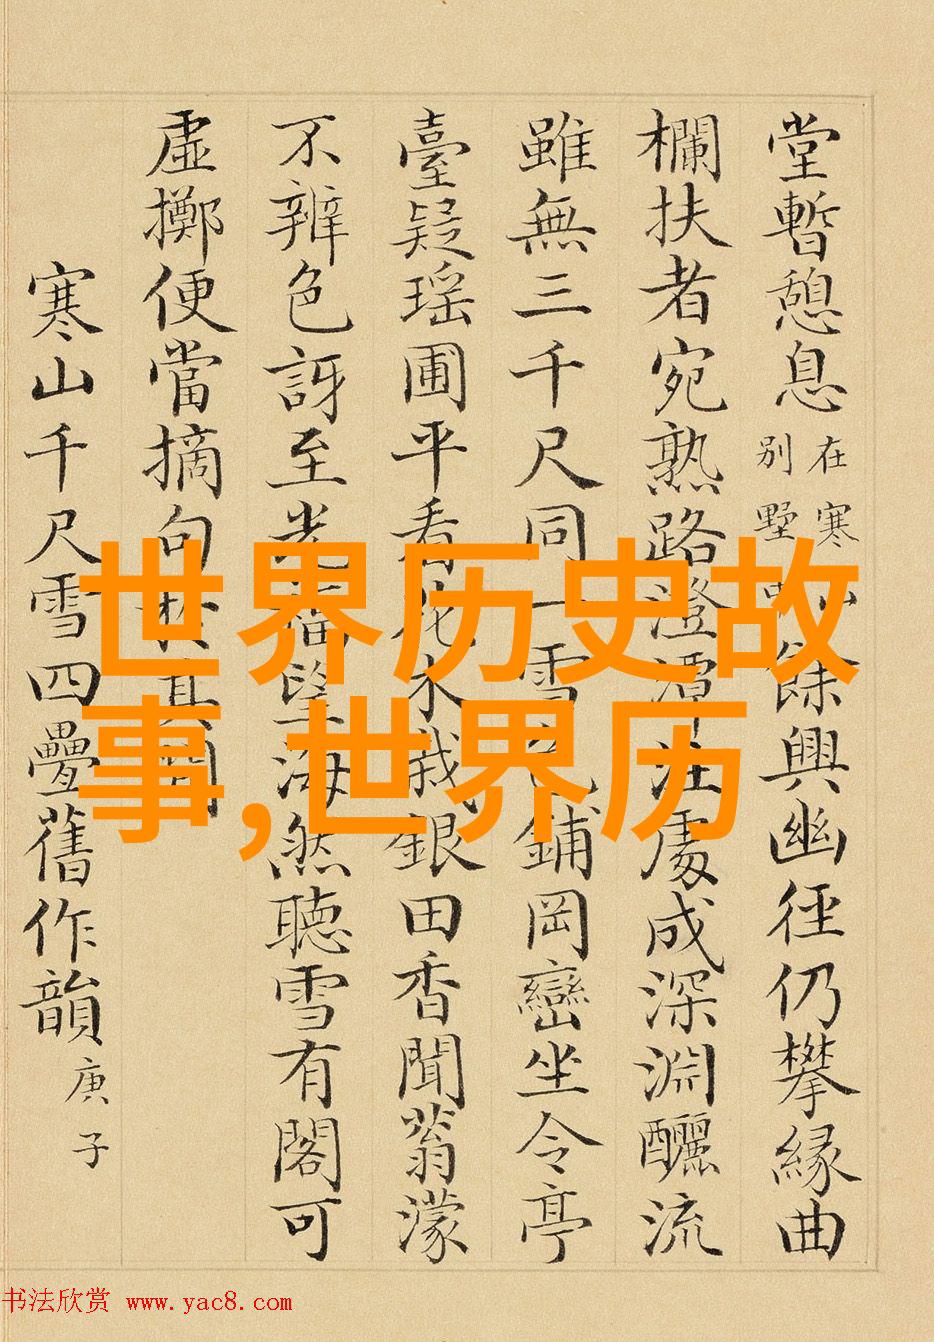 堂暫憩息
在寒山
別墅
餘興幽徑仍攀緣曲
欄扶者宛熟路澄潭注處成深淵釃流
雖無三千尺同一雪鋪岡巒坐令亭
臺疑瑤圃平看花木栽銀田香聞蓊濛
不辨色訝至光福望海然聽雪有閣可
虛擲便當摘句於其間
寒山千尺雪四疊舊作韻 庚子
世界历史故
事,世界历
书法欣赏 www.yac8.com